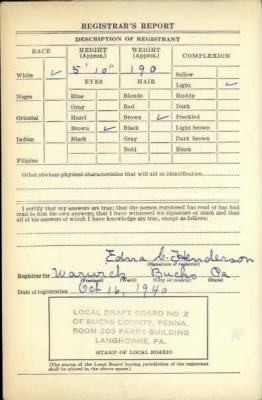 REGISTRAR'S REPORT
DESCRIPTION OF REGISTRANT
RACE HEIGHT (Approx.) WEIGHT (Approx.) COMPLEXION
White ✓ 5' 10" 190 Sallow
EYES HAIR Light ✓
Negro Blue Blonde Ruddy
Gray Red Dark
Oriental Hazel Brown ✓ Freckled
Brown ✓ Black Light brown
Indian Black Gray Dark brown
Bald Black
Filipino
Other obvious physical characteristics that will aid in identification
I certify that my answers are true; that the person registered has read or has had
read to him his own answers; that I have witnessed his signature or mark and that
all of his answers of which I have knowledge are true, except as follows:
Edna C. Henderson
(Signature of registrar)
Registrar for Warwick Bucks Pa.
(Precinct) (Ward) (City or county) (State)
Date of registration Oct 16, 1940
LOCAL DRAFT BOARD NO. 2
OF BUCKS COUNTY, PENNA.
ROOM 203 PARRY BUILDING
LANGHORNE, PA.
(STAMP OF LOCAL BOARD)
(The stamp of the Local Board having jurisdiction of the registrant
shall be placed in the above space.)